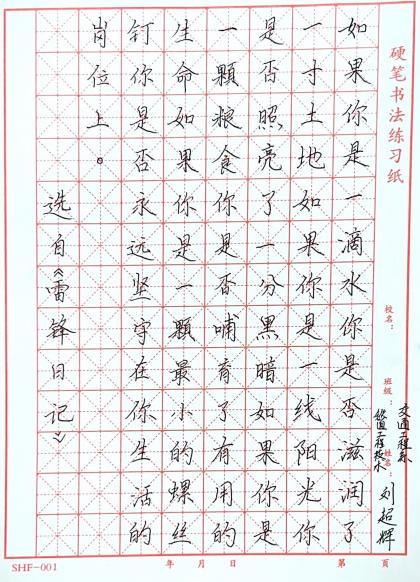 硬笔书法练习纸
校名：
班级：交通工程系
铁道工程技术
姓名：刘超辉
如果你是一滴水你是否滋润了
一寸土地如果你是一线阳光你
是否照亮了一分黑暗如果你是
一顆粮食你是否哺育了有用的
生命如果你是一顆最小的螺丝
钉你是否永远坚守在你生活的
岗位上。
选自《雷锋日记》
SHF-001 年 月 日 第 页